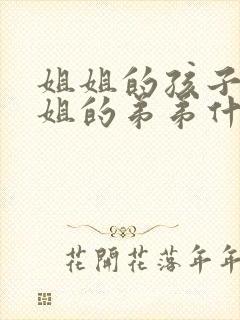 姐姐的孩子
姐的弟弟什
花開花落年年